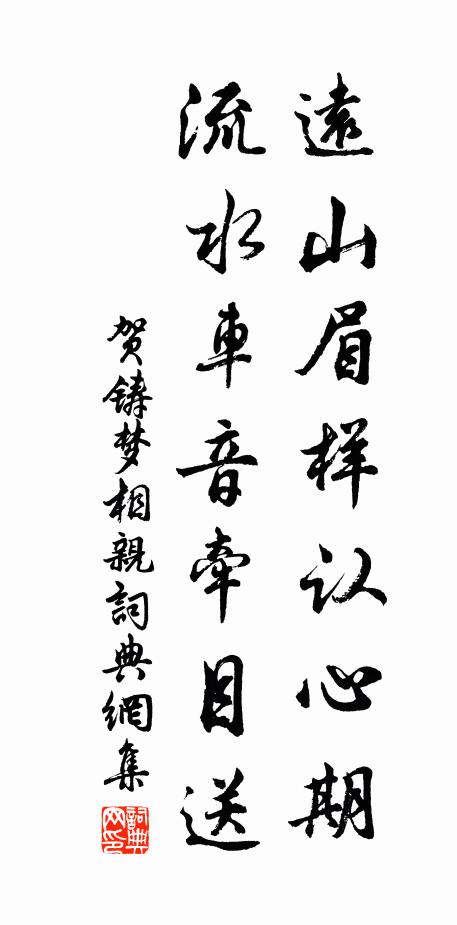 遠山眉样认心期
流水車音牽目送
贺鑄梦相親詞典網集
詞典网印